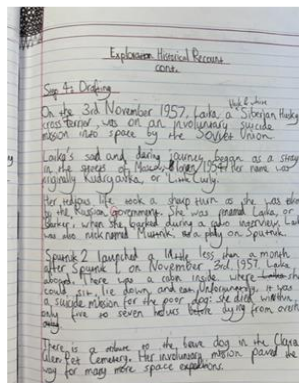 Exploration Historical Recount
cont.
Step 4: Drafting
On the 3rd November 1957, Laika, a Siberian Husky
cross terrier, was on an involuntary suicide
mission into space by the Soviet Union.
Laika's sad and daring journey began as a stray
in the streets of Moscow, 1954. Her name was
originally Kudryavka, or Little Curly.
Her tedious life took a sharp turn as she was taken
by the Russian Government. She was renamed Laika, or
Barker, when she barked during a radio interview. She
was also nick named Muttnik, a play on Sputnik.
Sputnik 2 launched a little less than a month
after Sputnik 1 on November 3rd 1957, Laika
aboard. There was a cabin inside where she
could sit, lie down and eat. Unfortunately, it was
a suicide mission for the poor dog; she died within
only five to seven hours before dying from overh
There is a tribute to the brave dog in the Clara
Glen Pet Cemetery. Her involuntary mission paved the
way for many more space expeditions.